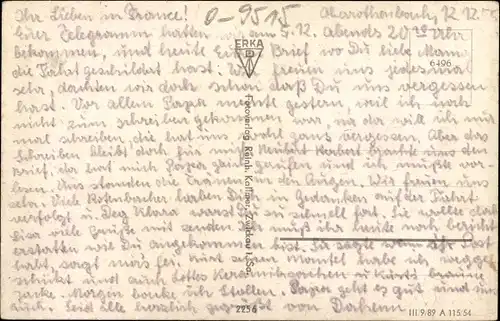 Ihr Lieben in France! O-9515 12.12.
Euer Telegramm hatten wir am 9.12. Abends 20 Uhr
bekommen, und heute Brief wo Du liebe Mama
die Fahrt geschildert hast. Wir freuen uns jedesmal
sehr, dachten wir doch schon daß Du uns vergessen
hast. Vor allem Papa meinte gestern, weil ich noch
nicht zum schreiben gekommen war, na da will ich mir
mal schreiben, die hat uns wohl ganz vergessen. Aber das
Schreiben bleibt doch für mich. Herbert brachte uns den
Brief, da hat mich Papa gleich gerufen und ich mußte vor-
lesen. Uns standen die Tränen in den Augen. Wir freuen uns
sehr. Viele Rotenbacher haben Dich in Gedanken auf der Fahrt
verfolgt u. Deg warst Du zu schnell fort. Sie wollte doch
Lisa viele Grüße mit senden. muß ihr heute noch bericht
erstatten wie Du angekommen bist. Sie sagte wenn ihr Post
habt, sagt mir's. Kurt seinen Mantel habe ich wegge-
schickt und auch Lottes u Kurts braune
Jacke. Morgen backe ich Stollen. Papa geht es gut und uns
auch. Seid alle herzlich gegrüßt von Daheim
ERKA
6496
Fotoverlag Reinh. Kallmer, Zwickau i. Sa.
2256
III 9/89 A 115/54